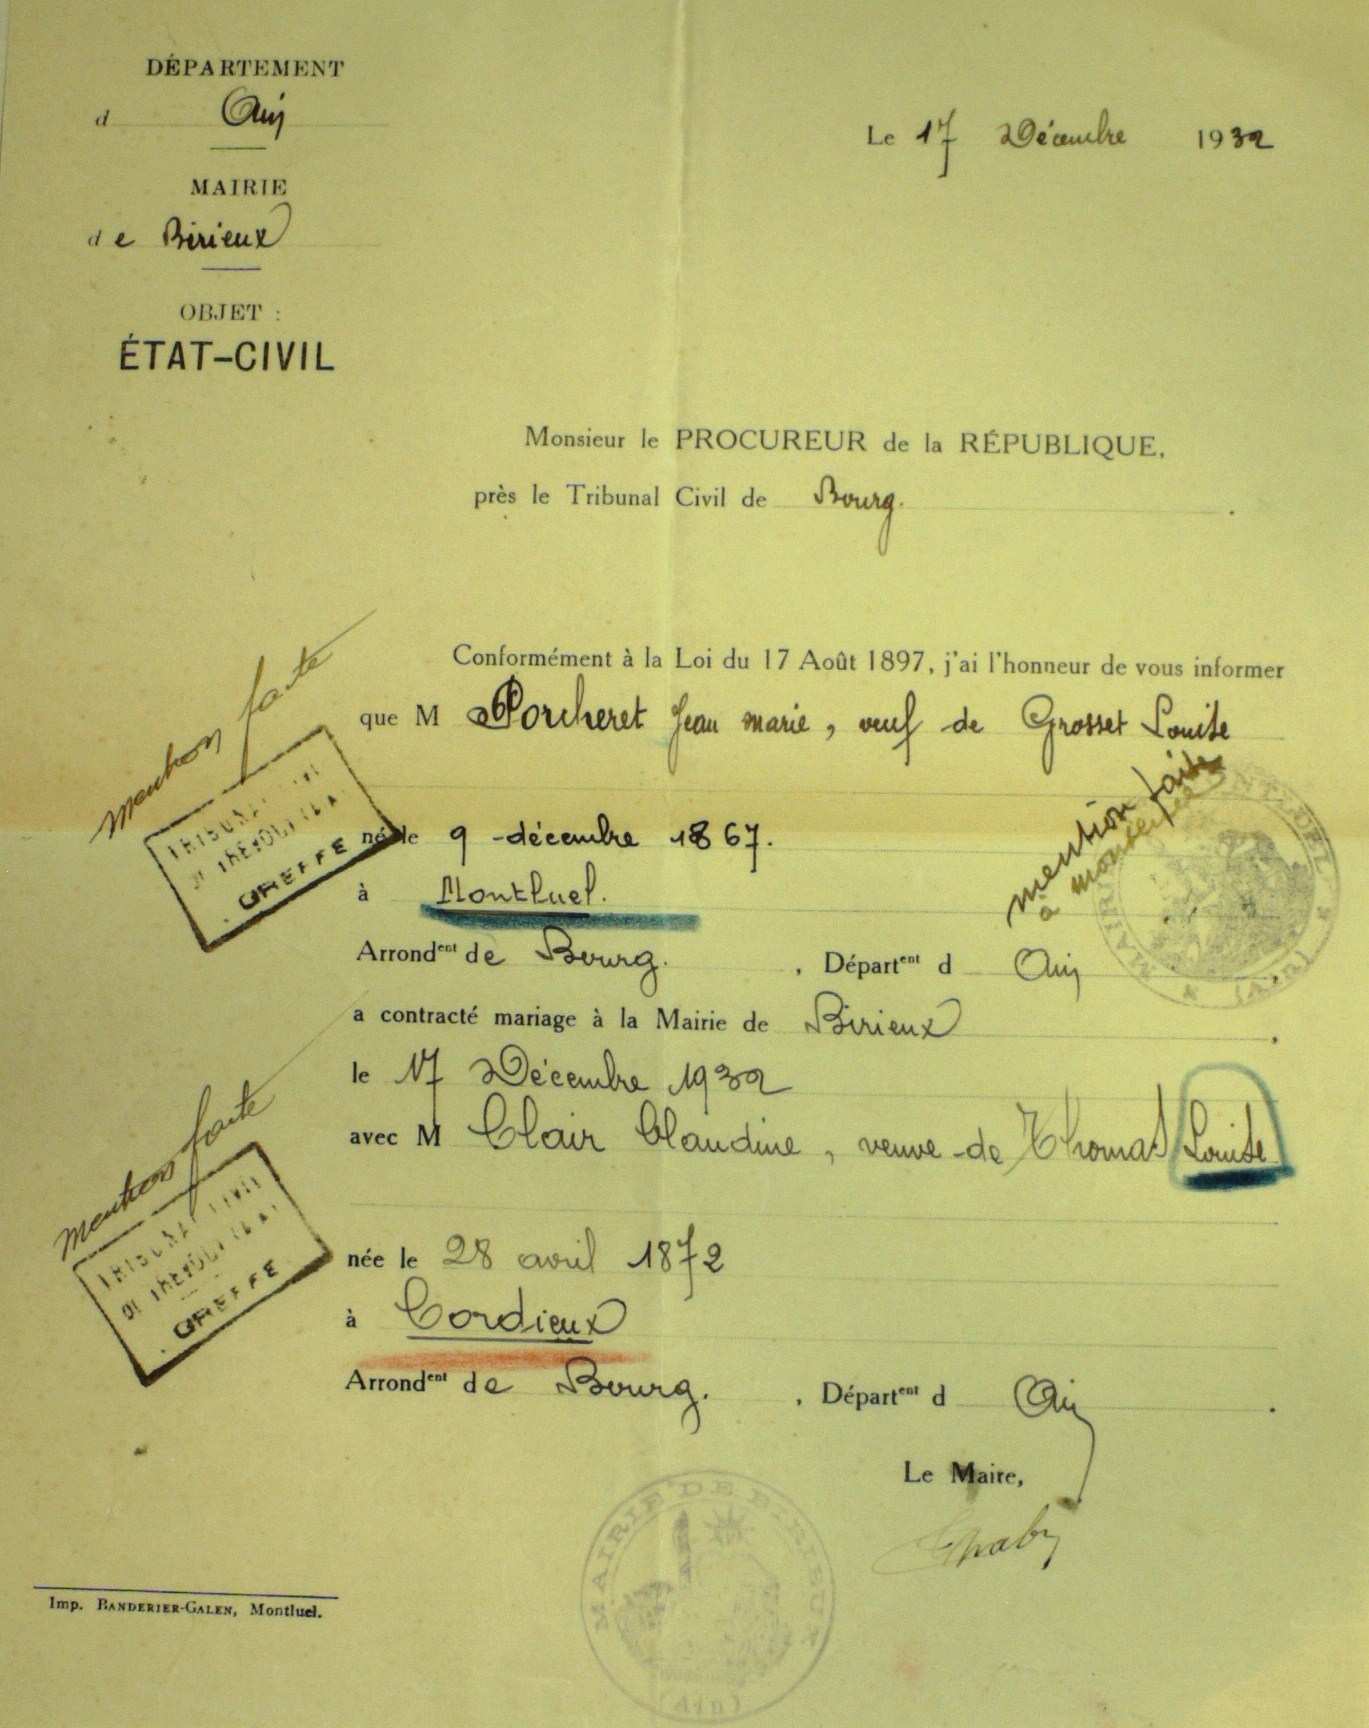 DÉPARTEMENT
d Ain
MAIRIE
de Birieux
OBJET :
ÉTAT-CIVIL
Le 17 Décembre 1932
Monsieur le PROCUREUR de la RÉPUBLIQUE,
près le Tribunal Civil de Bourg.
Conformément à la Loi du 17 Août 1897, j'ai l'honneur de vous informer
que M Porcheret Jean marie, veuf de Grosset Louise
mention faite
TRIBUNAL CIVIL
DE TREVOUX (AIN)
GREFFE
né le 9 décembre 1867.
mention faite
à Montluel
MAIRIE DE MONTLUEL
(Ain)
à Montluel.
Arrondent de Bourg. , Départent d Ain
a contracté mariage à la Mairie de Birieux .
le 17 Décembre 1932
avec M Clair Claudine, veuve de Thomas Louise
mention faite
TRIBUNAL CIVIL
DE TREVOUX (AIN)
GREFFE
née le 28 avril 1872
à Cordieux
Arrondent de Bourg. , Départent d Ain .
Le Maire,
MAIRIE DE BIRIEUX
(Ain)
Imp. BANDERIER-GALEN, Montluel.